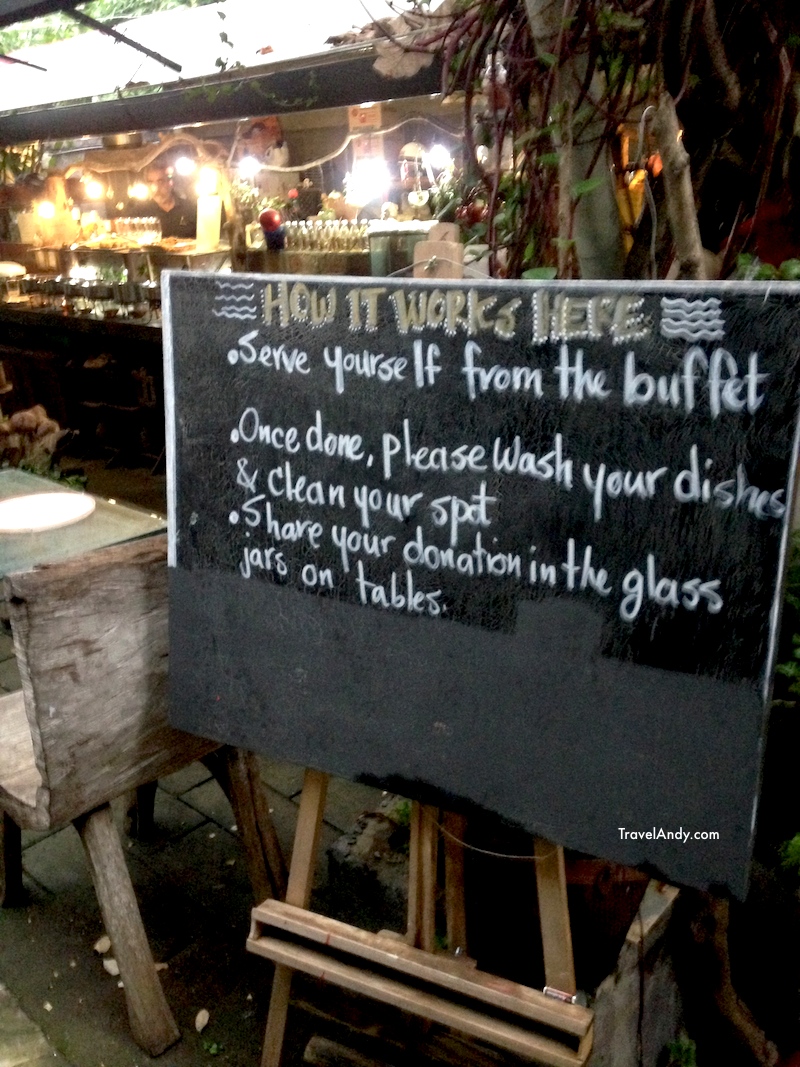 HOW IT WORKS HERE
•Serve yourself from the buffet
•Once done, please wash your dishes
& clean your spot
•Share your donation in the glass
jars on tables.
TravelAndy.com